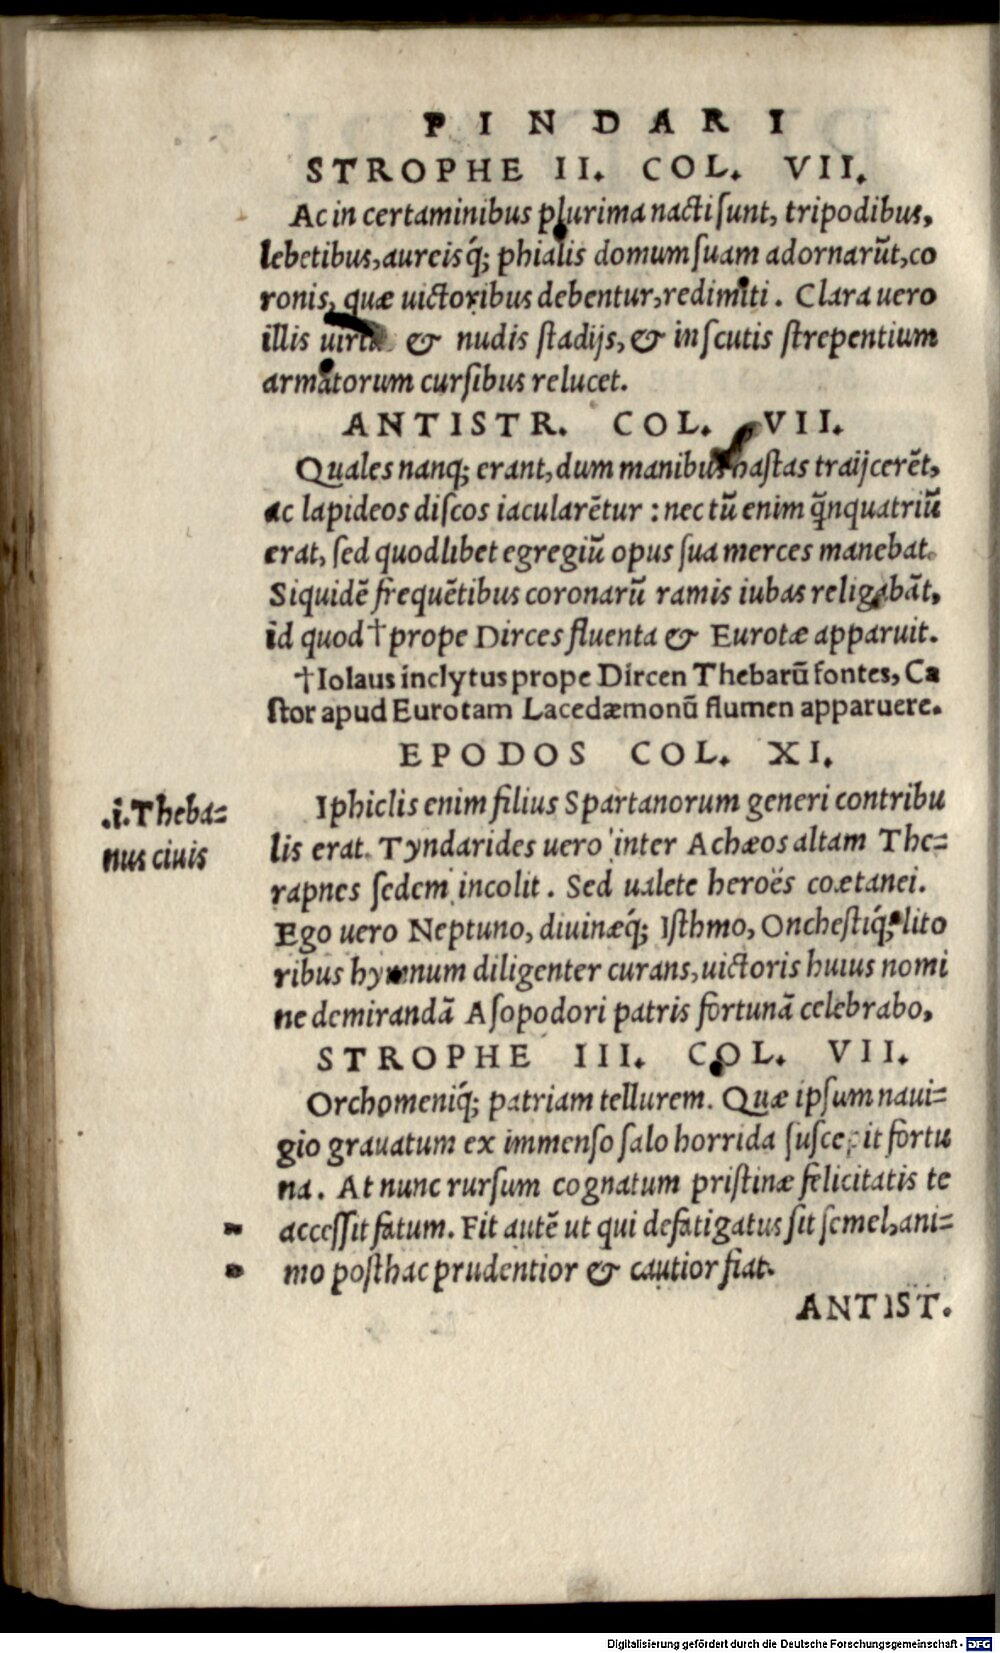 PINDARI
STROPHE II. COL. VII.
Ac in certaminibus plurima nacti sunt, tripodibus,
lebetibus, aureisq́; phialis domum suam adornarūt, co
ronis, quæ uictoribus debentur, redimiti. Clara uero
illis & nudis stadijs, & in scutis strepentium
armatorum cursibus relucet.
ANTISTR. COL. VII.
Quales nanq; erant, dum manibus hastas traijcerēt,
ac lapideos discos iacularētur : nec tū enim q̄nquatriū
erat, sed quodlibet egregiū opus sua merces manebat.
Siquidē frequētibus coronarū ramis iubas religabāt,
id quod † prope Dirces fluenta & Eurotæ apparuit.
† Iolaus inclytus prope Dircen Thebarū fontes, Ca
stor apud Eurotam Lacedæmonū flumen apparuere.
EPODOS COL. XI.
Iphiclis enim filius Spartanorum generi contribu
.i. Theba=
lis erat. Tyndarides uero inter Achæos altam The=
nus ciuis
rapnes sedem incolit. Sed ualete heroës coætanei.
Ego uero Neptuno, diuinæq́; Isthmo, Onchestiq́; lito
ribus hymnum diligenter curans, uictoris huius nomi
ne demirandā Asopodori patris fortunā celebrabo,
STROPHE III. COL. VII.
Orchomeniq́; patriam tellurem. Quæ ipsum naui=
gio grauatum ex immenso salo horrida suscepit fortu
na. At nunc rursum cognatum pristinæ felicitatis te
accessit fatum. Fit autē ut qui defatigatus sit semel, ani=
mo posthac prudentior & cautior fiat.
ANTIST.
Digitalisierung gefördert durch die Deutsche Forschungsgemeinschaft - DFG